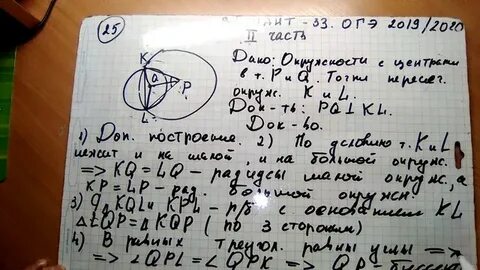 25
33. ОГЭ 2019/2020
II часть
K
Q
P
L
Дано: Окружности с центрами
в т. P и Q. Точки пересеч.
окруж. K и L.
Док-ть: PQ⊥KL.
Док-во.
1) Доп. построение. 2) По условию т. K и L
лежит и на малой, и на большой окруж.
=> KQ = LQ - радиусы малой окруж., а
KP = LP - рад. большой окружн.
3) KQL и KPL - р/б с основанием KL
Δ LQP = Δ KQP ( по 3 сторонам)
4) В равных треугол. равны углы =>
=> ∠QPL = ∠QPK => QP -